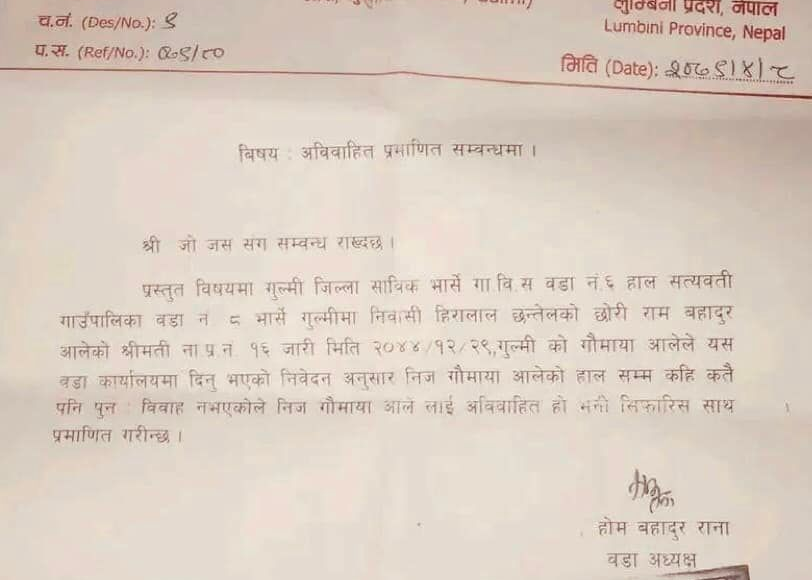 लुम्बिनी प्रदेश, नेपाल
Lumbini Province, Nepal
च.नं. (Des/No.): ९
प.स. (Ref/No.): ०७९/८०
मिति (Date): २०७९/४/८
बिषय : अविवाहित प्रमाणित सम्वन्धमा ।
श्री जो जस संग सम्वन्ध राख्दछ ।
प्रस्तुत विषयमा गुल्मी जिल्ला साविक भार्से गा.वि.स वडा नं.६ हाल सत्यवती
गाउँपालिका वडा नं ८ भार्से गुल्मीमा निवासी हिरालाल छन्तेलको छोरी राम बहादुर
आलेको श्रीमती ना.प्र.नं. १६ जारी मिति २०४४/१२/२९,गुल्मी को गौमाया आलेले यस
वडा कार्यालयमा दिनु भएको निवेदन अनुसार निज गौमाया आलेको हाल सम्म कहि कतै
पनि पुन : विवाह नभएकोले निज गौमाया आले लाई अविवाहित हो भनी सिफारिस साथ
प्रमाणित गरीन्छ ।
होम बहादुर राना
वडा अध्यक्ष